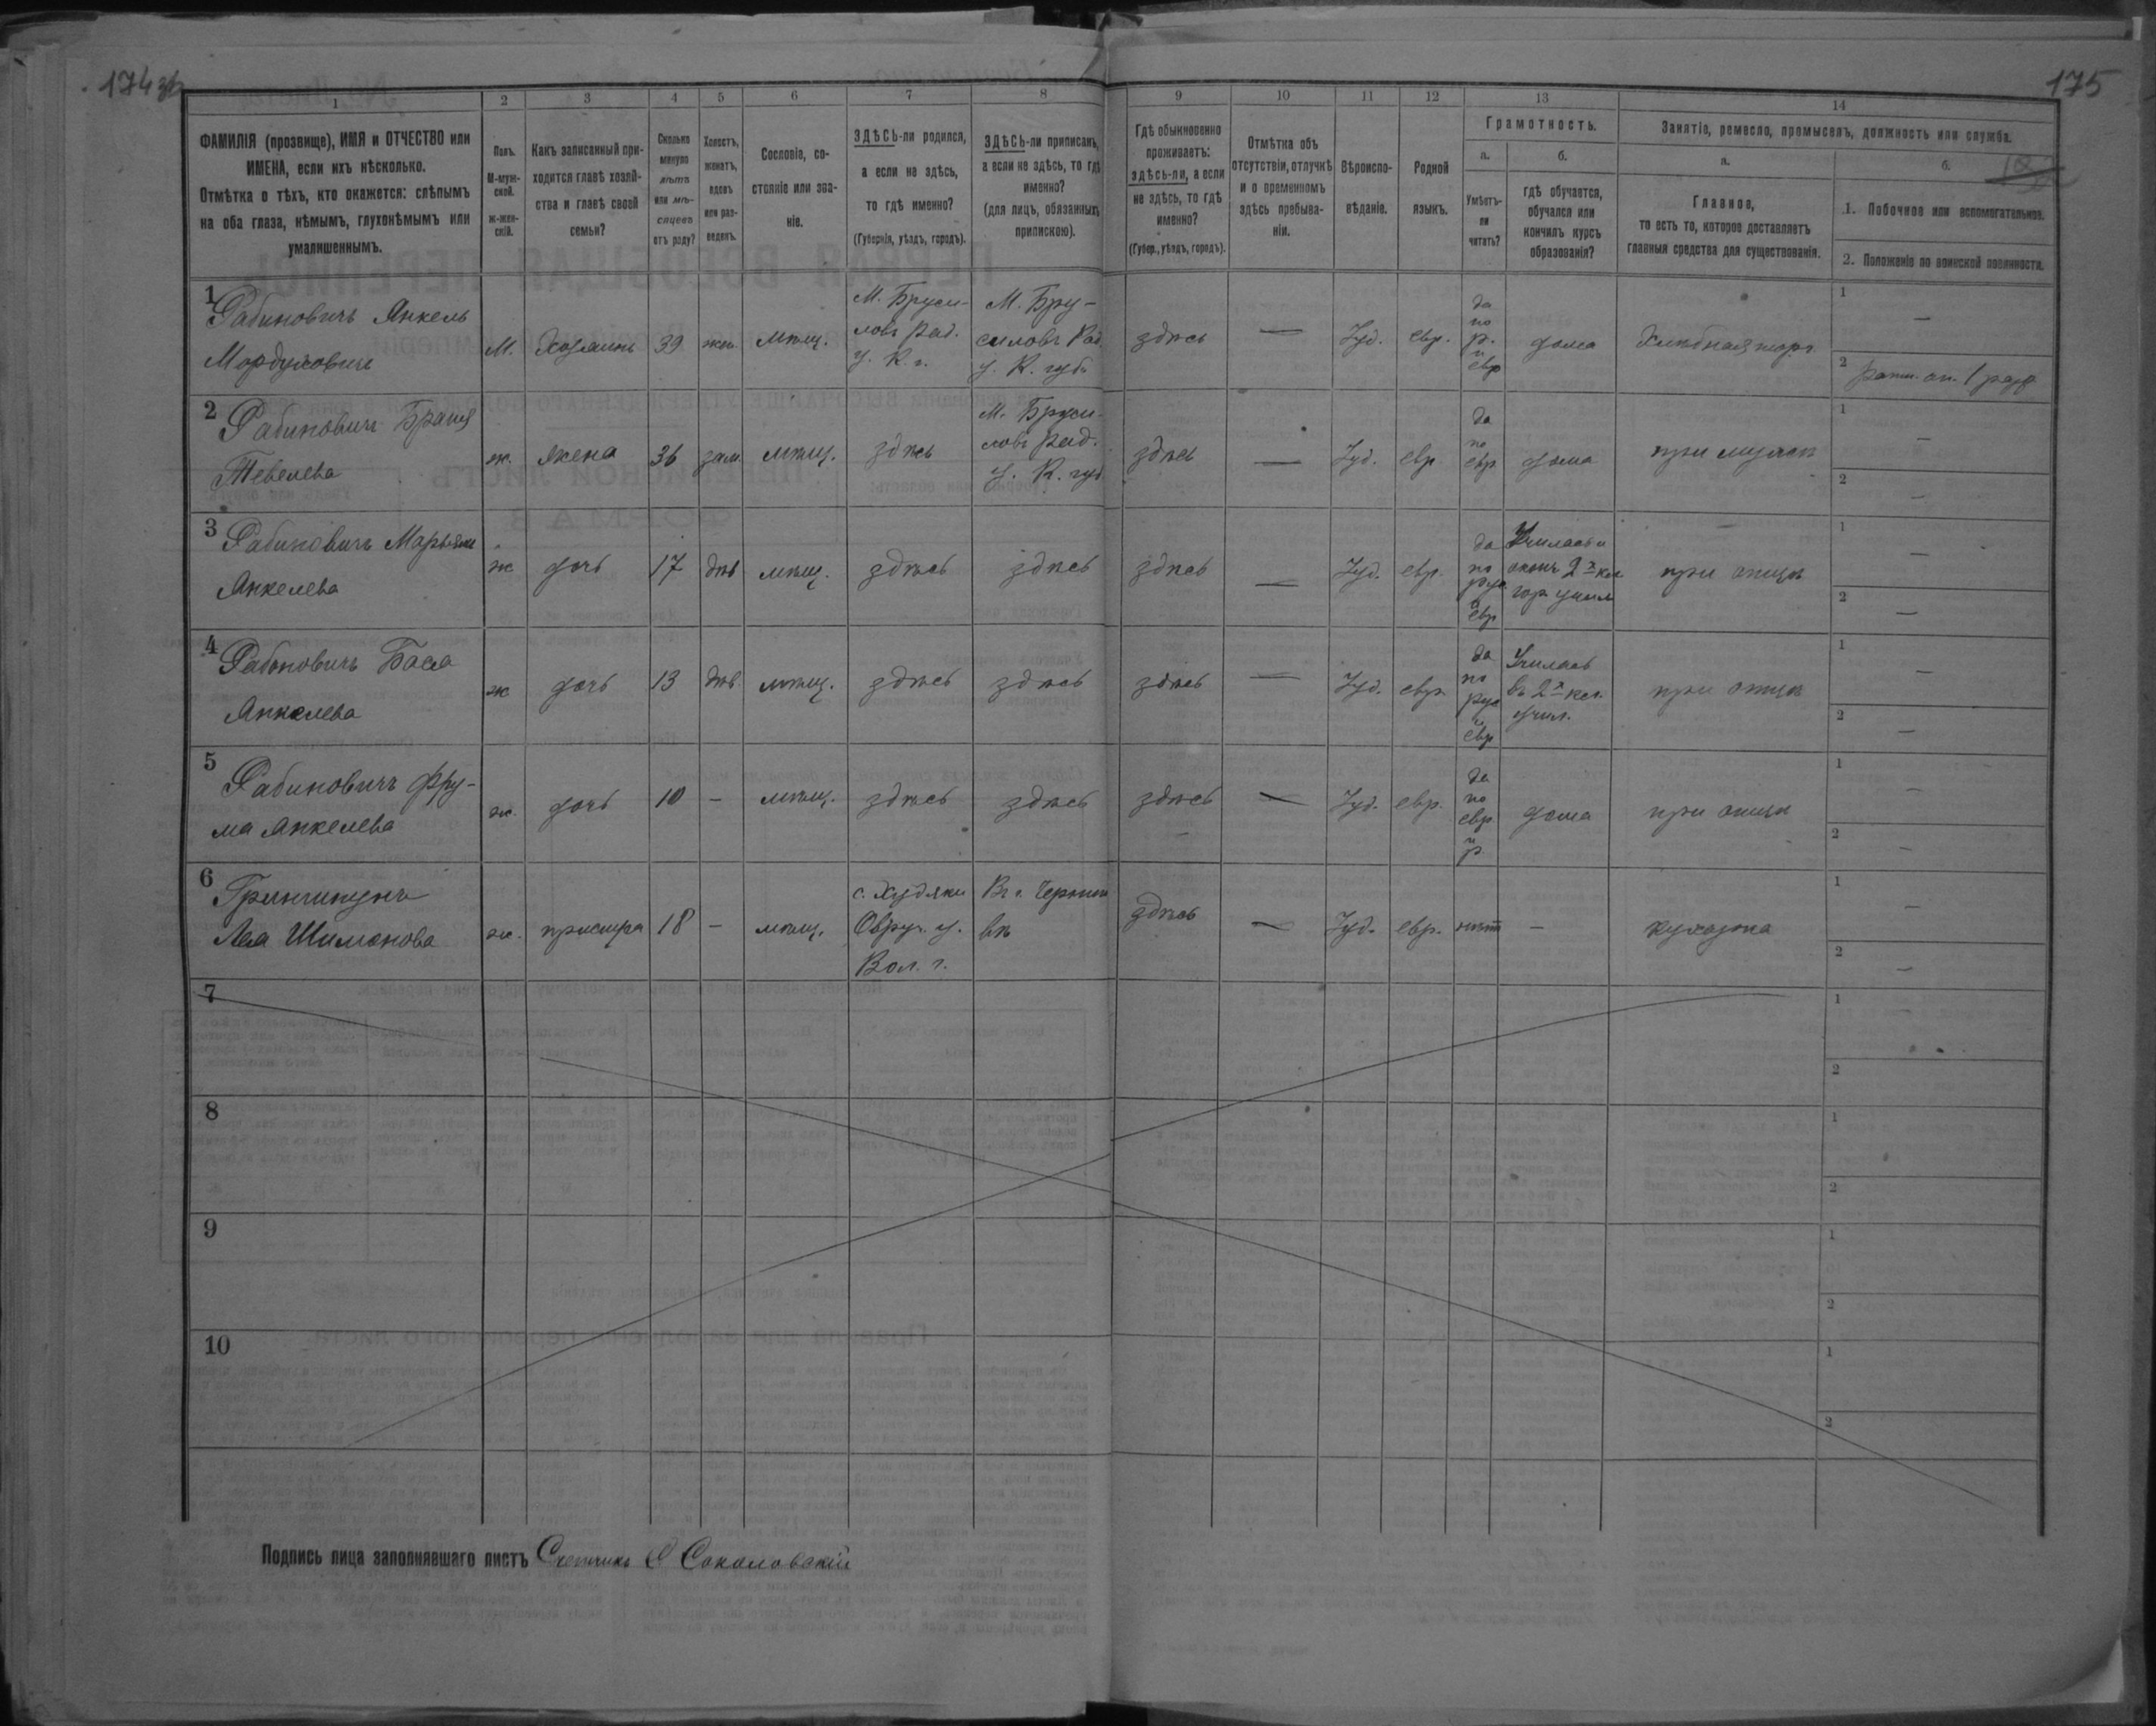 174 об
175
1
2
3
4
5
6
7
8
9
10
11
12
13
14
ФАМИЛІЯ (прозвище), ИМЯ и ОТЧЕСТВО или
ИМЕНА, если ихъ нѣсколько.
Отмѣтка о тѣхъ, кто окажется: слѣпымъ
на оба глаза, нѣмымъ, глухонѣмымъ или
умалишеннымъ.
Полъ.
М-муж-
ской.
ж-жен-
скій.
Какъ записанный при-
ходится главѣ хозяй-
ства и главѣ своей
семьи?
Сколько
минуло
лѣтъ
или мѣ-
сяцевъ
отъ роду?
Холостъ,
женатъ,
вдовъ
или раз-
веденъ.
Сословіе, со-
стояніе или зва-
ніе.
ЗДѢСЬ-ли родился,
а если не здѣсь,
то гдѣ именно?
(Губернія, уѣздъ, городъ).
ЗДѢСЬ-ли приписанъ,
а если не здѣсь, то гдѣ
именно?
(для лицъ, обязанныхъ
припискою).
Гдѣ обыкновенно
проживаетъ:
здѣсь-ли, а если
не здѣсь, то гдѣ
именно?
(Губер., уѣздъ, городъ).
Отмѣтка объ
отсутствіи, отлучкѣ
и о временномъ
здѣсь пребыва-
ніи.
Вѣроиспо-
вѣданіе.
Родной
языкъ.
Грамотность.
а.
Умѣетъ-
ли
читать?
б.
гдѣ обучается,
обучался или
кончилъ курсъ
образованія?
Занятіе, ремесло, промыселъ, должность или служба.
а.
Главное,
то есть то, которое доставляетъ
главныя средства для существованія.
б.
1. Побочное или вспомогательное.
2. Положеніе по воинской повинности.
1
Рабиновичъ Янкель
Мордуховичъ
М.
Хозяинъ
39
жен.
мѣщ.
М. Бруси-
ловъ Рад.
у. К. г.
М. Бру-
силовъ Рад
у. К. губ.
здѣсь
—
Іуд.
евр.
да
по
р.
и
евр
дома
Хлѣбная торг.
1 —
2 ратн. оп. 1 разр
2
Рабиновичъ Браня
Тевелева
ж.
жена
36
зам.
мѣщ.
здѣсь
М. Бруси-
ловъ Рад.
у. К. губ
здѣсь
—
Іуд.
евр
да
по
евр
дома
при мужѣ
1 —
2 —
3
Рабиновичъ Марьям
Янкелева
ж
дочь
17
дѣв
мѣщ.
здѣсь
здѣсь
здѣсь
—
Іуд.
евр.
да
по
рус
и
евр
Училась и
оконч 2х кл
гор. учил
при отцѣ
1 —
2 —
4
Рабиновичъ Бася
Янкелева
ж
дочь
13
дѣв.
мѣщ.
здѣсь
здѣсь
здѣсь
—
Іуд.
евр.
да
по
рус
и
евр
Училась
въ 2х кл.
учил.
при отцѣ
1 —
2 —
5
Рабиновичъ Фру-
ма Янкелева
ж.
дочь
10
-
мѣщ.
здѣсь
здѣсь
здѣсь
—
Іуд.
евр.
да
по
евр
и
р.
дома
при отцѣ
1 —
2 —
6
Лея Шимонова
ж.
18
-
мѣщ.
Овруч. у.
Вол. г.
здѣсь
—
Іуд.
евр.
нѣтъ
—
кухарка
1 —
2 —
7
1
2
8
1
2
9
1
2
10
1
2
Подпись лица заполнявшаго листъ Счетчикъ С Соколовскій